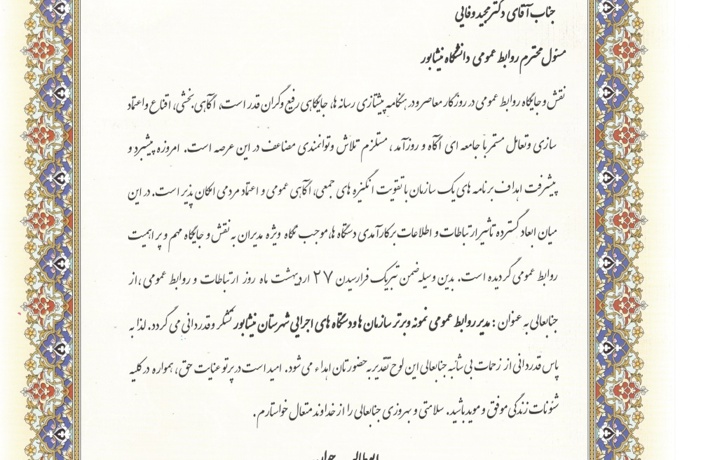 جناب آقای دکتر مجید وفائی
مسئول محترم روابط عمومی دانشگاه نیشابور
نقش و جایگاه روابط عمومی در روزگار معاصر و در هنگامه پیشتازی رسانه ها، جایگاهی رفیع و گران قدر است، آگاهی بخشی، اقناع و اعتماد
سازی و تعامل مستمر با جامعه ای آگاه و روزآمد ، مستلزم تلاش و توانمندی مضاعف در این عرصه است. امروزه پیشبرد و
پیشرفت اهداف برنامه های یک سازمان با تقویت انگیزه های جمعی، آگاهی عمومی و اعتماد مردمی امکان پذیر است. در این
میان ابعاد گسترده تاثیر ارتباطات و اطلاعات بر کارآمدی دستگاه ها، موجب نگاه ویژه مدیران به نقش و جایگاه مهم و پر اهمیت
روابط عمومی گردیده است. بدین وسیله ضمن تبریک فرارسیدن ۲۷ اردیبهشت ماه روز ارتباطات و روابط عمومی ، از
جنابعالی به عنوان : مدیر روابط عمومی نمونه و برتر سازمان ها و دستگاه های اجرایی شهرستان نیشابور تشکر و قدردانی می گردد. لذا به
پاس قدردانی از زحمات بی شائبه جنابعالی این لوح تقدیر به حضورتان اهداء می شود. امید است در پرتو عنایت حق، همواره در کلیه
شئونات زندگی موفق و موید باشید. سلامتی و بهروزی جنابعالی را از خداوند متعال خواستارم .